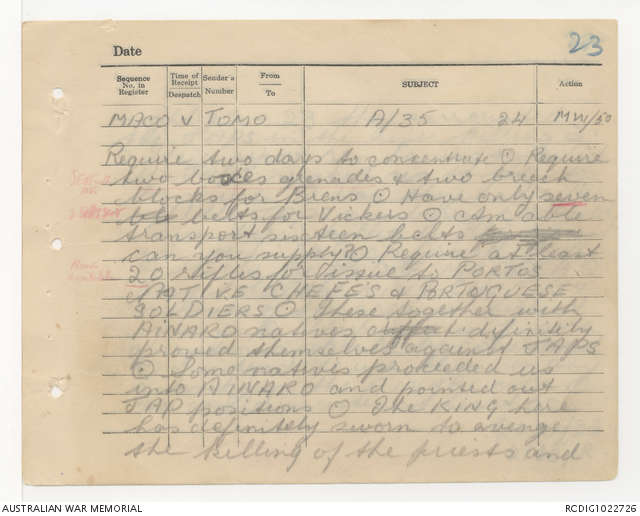 23
Date
Sequence No. in Register
Time of Receipt Despatch
Sender's Number
From To
SUBJECT
Action
MACO V TOMO A/35 24 MW/50
Require two days to concentrate ⊙ Require
two boxes grenades & two breech
blocks for Brens ⊙ Have only seven
belts for Vickers ⊙ Am able
transport sixteen belts
can you supply? ⊙ Require at least
20 rifles for issue to PORTOS
NATIVE CHEFE'S & PORTUGUESE
SOLDIERS ⊙ These together with
AINARO natives definitily
proved themselves against JAPS
⊙ Some natives proceeded us
into AINARO and pointed out
JAP positions ⊙ The KING here
has definitely sworn to avenge
the killing of the priests and
AUSTRALIAN WAR MEMORIAL
RCDIG1022726